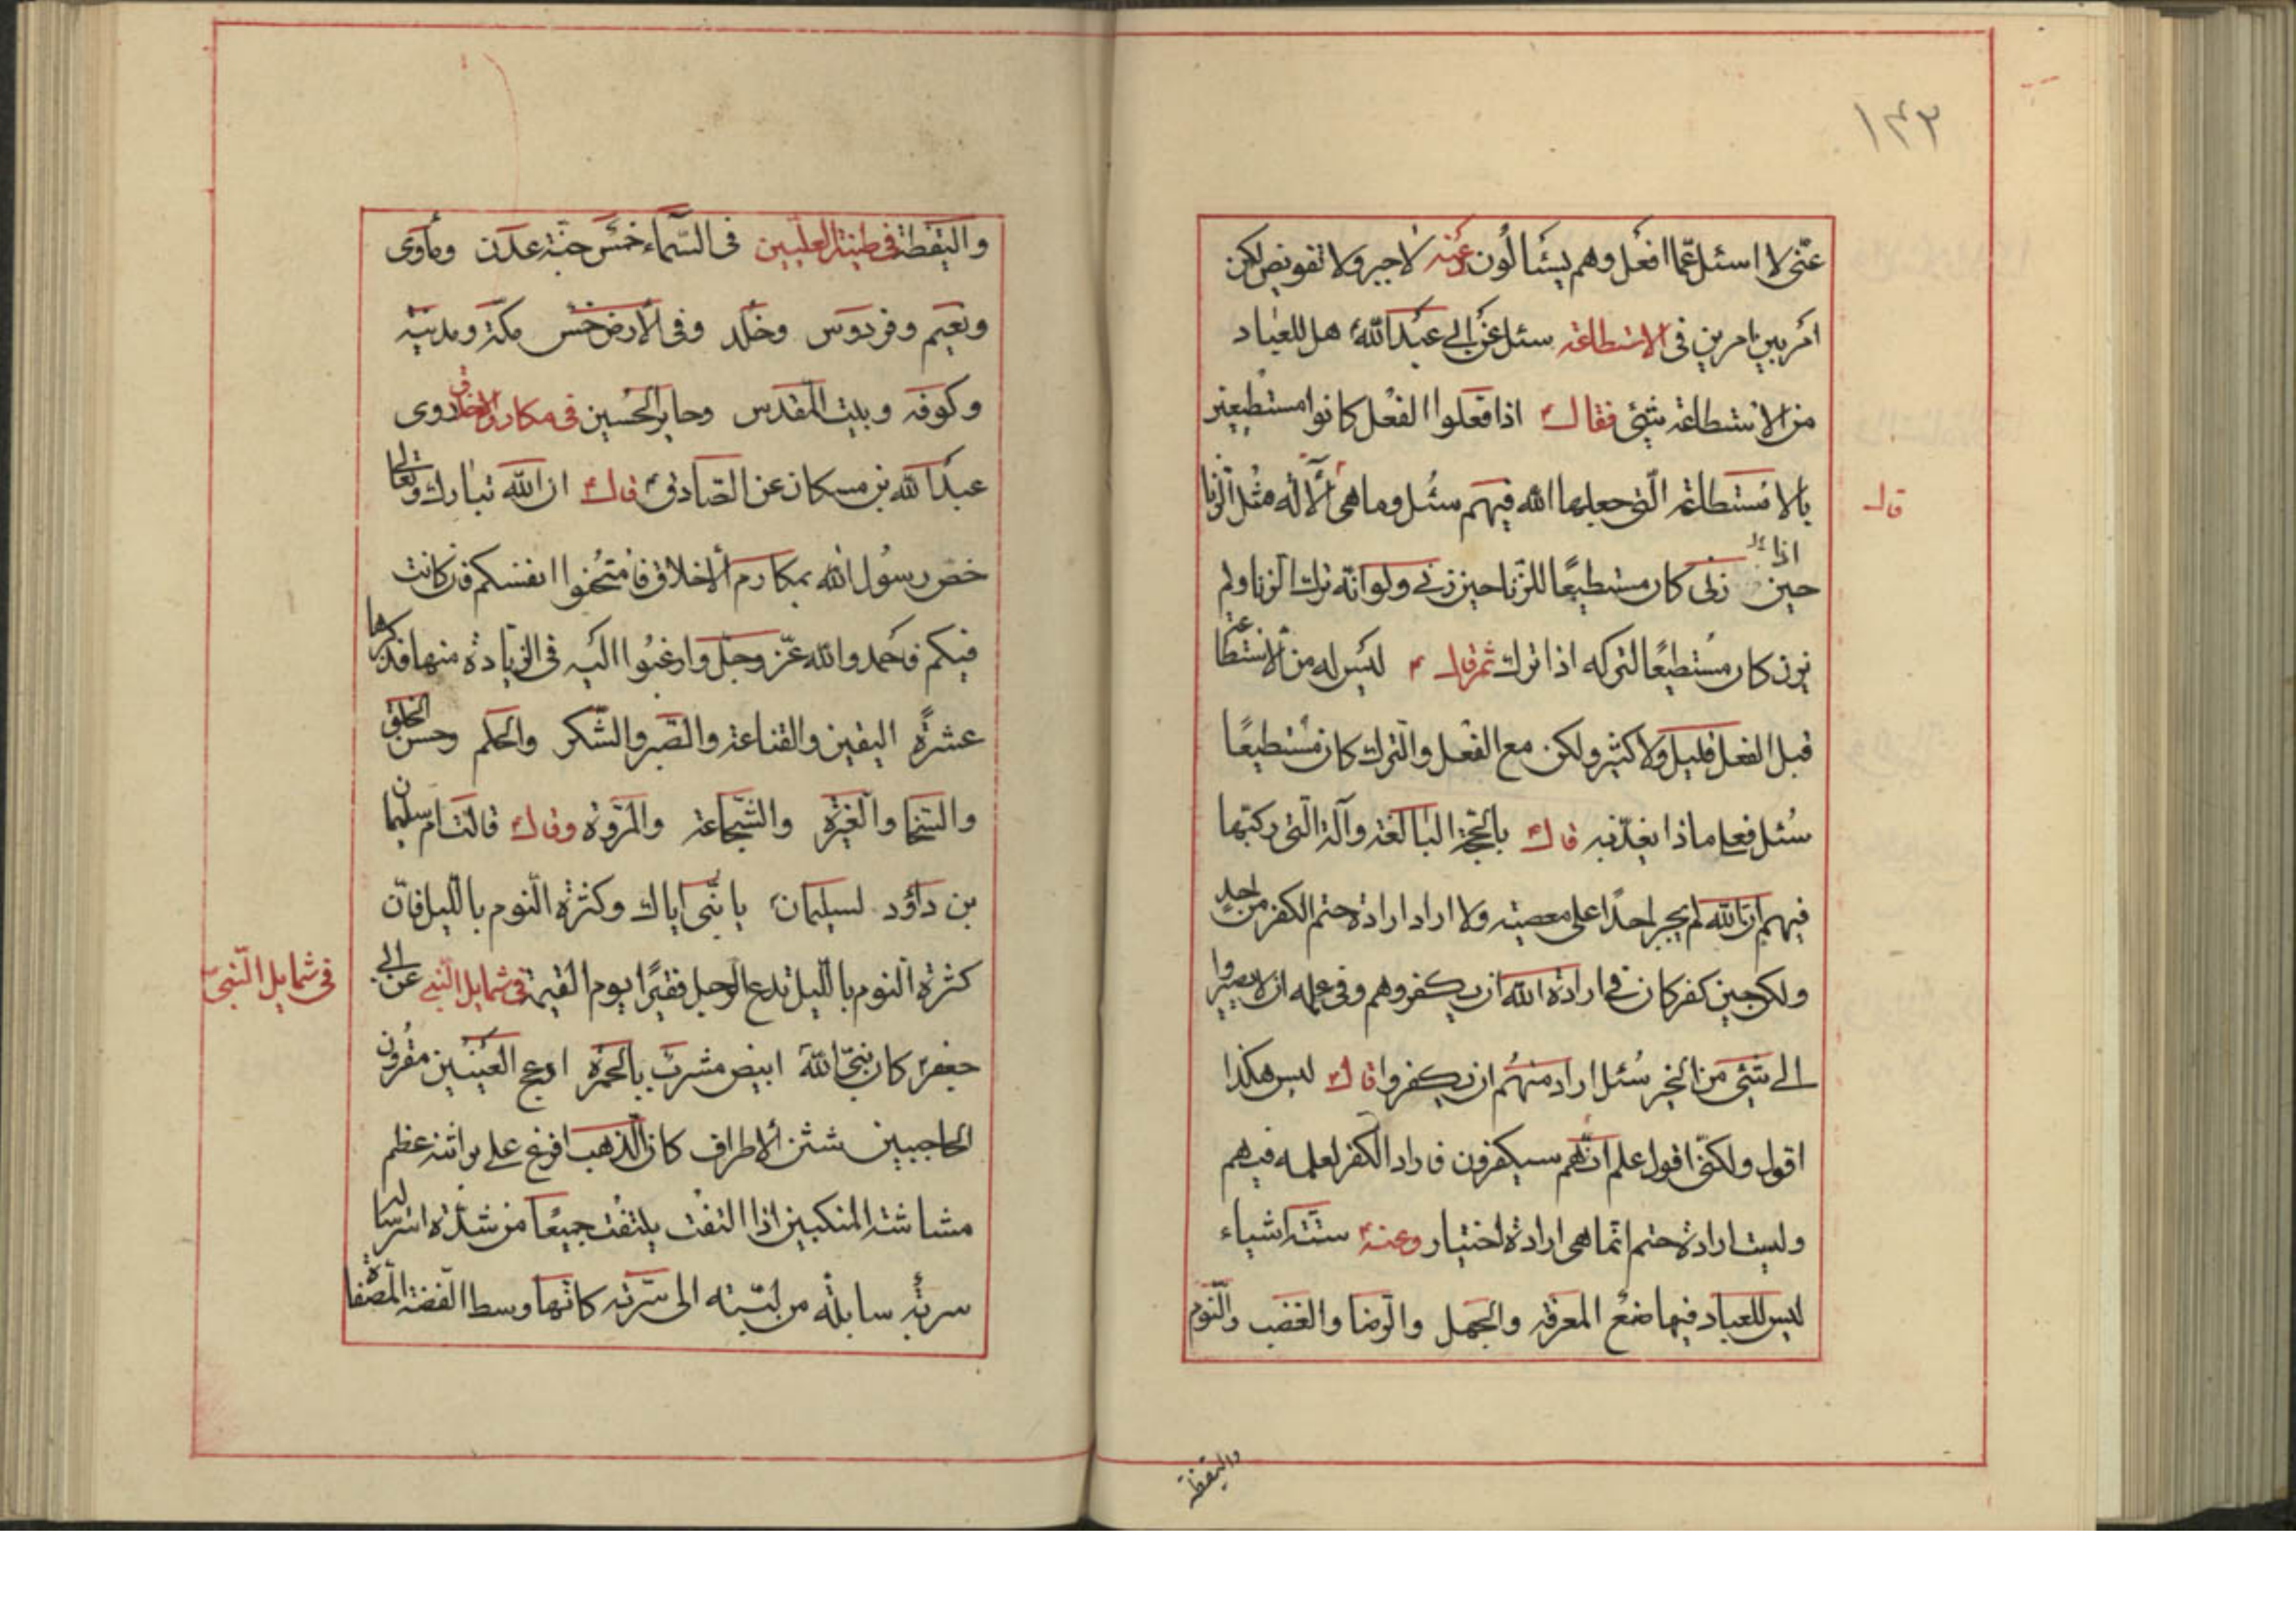 ١٤٣
عنّى لا اسئل عمّا افعل وهم يسئالُون وعنه لا جبر ولا تفويض لكن
امر بين امرين فى الاستطاعة سئل عن ابى عبد الله هل للعباد
من الاستطاعة شئ فقال اذا فعلوا الفعل كانوا مستطيعين
بالاستطاعة الّتى جعلها الله فيهم سئل وما هى قال ألآلة مثل الزنا
قال
حين اذا زنى كان مستطيعًا للزّنا حين زنى ولو انّه ترك الزنا ولم
يزن كان مستطيعًا لتركه اذا ترك ثم قال ليس له من الاستطاعة
قبل الفعل قليل ولا كثير ولكن مع الفعل والترك كان مستطيعًا
سُئل فعلى ماذا يعذّبه قال بالحجّة البالغة وآلة الّتى ركبها
فيهم انّ الله لم يجبر احدًا على معصيته ولا اراد ارادة حتم الكفر من احدٍ
ولكن حين كفر كان فى ارادة الله ان يكفر وهم وفى علمه ان لا يصيروا
الى شئ من الخير سُئل اراد منهم ان يكفروا قال ليس هكذا
اقول ولكنّى اقول علم انّهم سيكفرون فاراد الكفر لعلمه فيهم
وليست ارادة حتم انّما هى ارادة اختيار وعنه ستّة اشياء
ليس للعباد فيها صنع المعرفة والجهل والرّضا والغضب والنّوم
واليقظة
واليقظة فى طينة العليين فى السّماء خمس جنّة عدن ومأوى
ونعيم وفردوس وخلد وفى الأرض خمس مكّة ومدينة
وكوفه وبيت المقدس وحاير الحسين فى مكارم الاخلاق روى
عبد الله بن مسكان عن الصّادق قال ان الله تبارك وتعالى
خصّ رسُول الله بمكارم ألاخلاق فامتحنوا انفسكم فان كانت
فيكم فاحمدوا الله عزّ وجلّ وارغبوا اليه فى الزّيادة منها فذكرها
عشرةً اليقين والقناعة والصّبر والشّكر والحلم وحسن الخلق
والسّخا والغيرة والشّجاعة والمروة وقال قالت امّ سليمان
بن داؤد لسليمان يا بنّى اياك وكثرة النّوم بالليل فانّ
كثرة النوم بالليل تدع الرجل فقيرًا يوم القيمة فى شمايل النّبى عن ابى
فى شمايل النّبىّ
جعفر كان نبىّ الله ابيض مشرب بالحمرة ادعج العينين مقرون
الحاجبين شثن ألاطراف كان الذهب افرغ على براثنه عظم
مشاشة المنكبين اذا التفت يلتفت جميعًا من شدّة استرساله
سربة سابلة من لبّته الى سرّته كانّها وسط الفضّة المصفاة